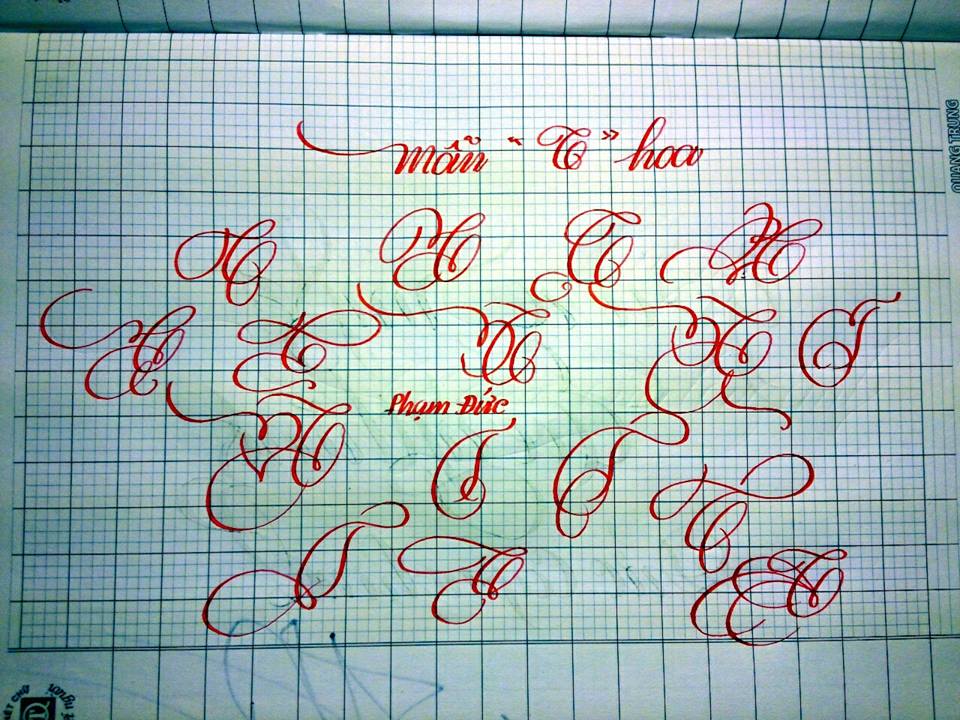 mẫu “T” hoa
T T T T
T T T T T
Phạm Đức
T T T T
T T T
QUANG TRUNG